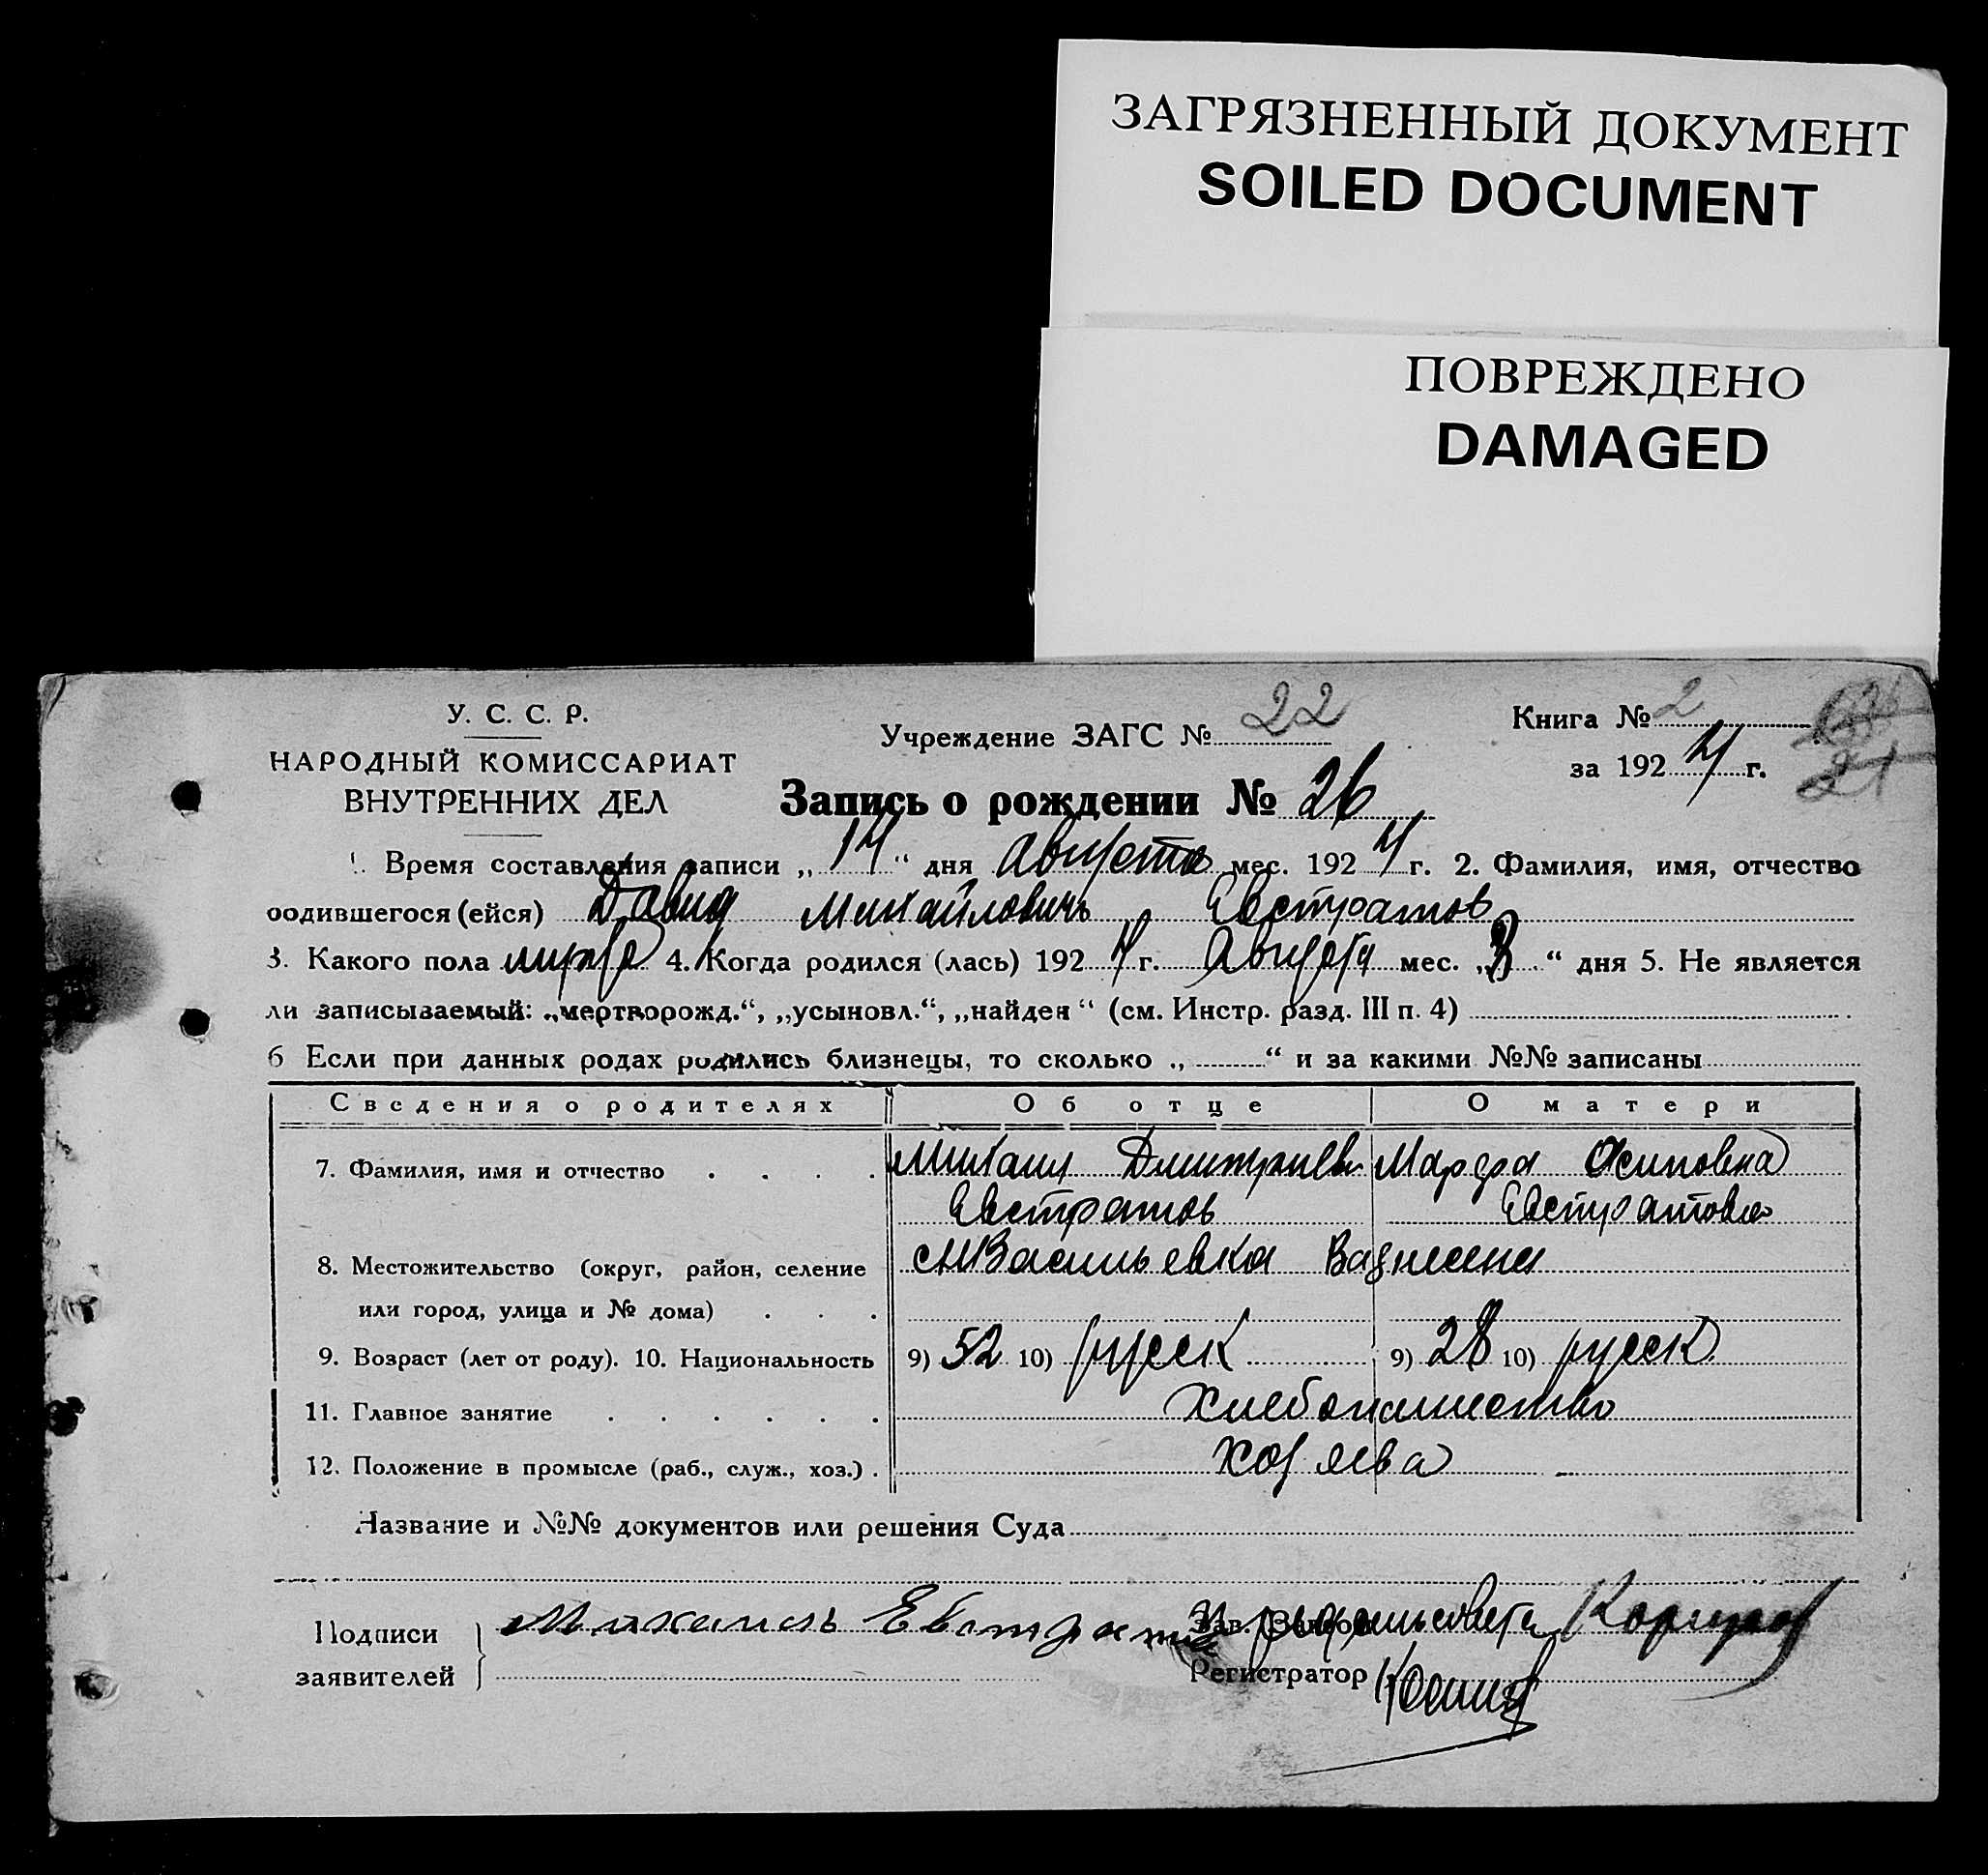 ЗАГРЯЗНЕННЫЙ ДОКУМЕНТ
SOILED DOCUMENT
ПОВРЕЖДЕНО
DAMAGED
У. С. С. Р.
НАРОДНЫЙ КОМИССАРИАТ
ВНУТРЕННИХ ДЕЛ
Учреждение ЗАГС № 22
Книга № 2
за 192 4 г.
21
Запись о рождении № 26
1. Время составления записи „ 14 “ дня Августа мес. 192 4 г. 2. Фамилия, имя, отчество
родившегося (ейся) Давид Михайловичь Евстратов
3. Какого пола 4. Когда родился (лась) 192 4 г. Августа мес. „ “ дня 5. Не является
ли записываемый: „мертворожд.“, „усыновл.“, „найден“ (см. Инстр. разд. III п. 4)
6 Если при данных родах родились близнецы, то сколько „ “ и за какими №№ записаны
Сведения о родителях Об отце О матери
7. Фамилия, имя и отчество Михаил Дмитриев Марфа Осиповна
Евстратов Евстратова
8. Местожительство (округ, район, селение Васильевка
или город, улица и № дома)
9. Возраст (лет от роду). 10. Национальность 9) 52 10) русск 9) 28 10) русск
11. Главное занятие Хлебопашество
12. Положение в промысле (раб., служ., хоз.) хозяева
Название и №№ документов или решения Суда
Подписи заявителей Михаиль Евстратов
Зав. Загсом
Регистратор